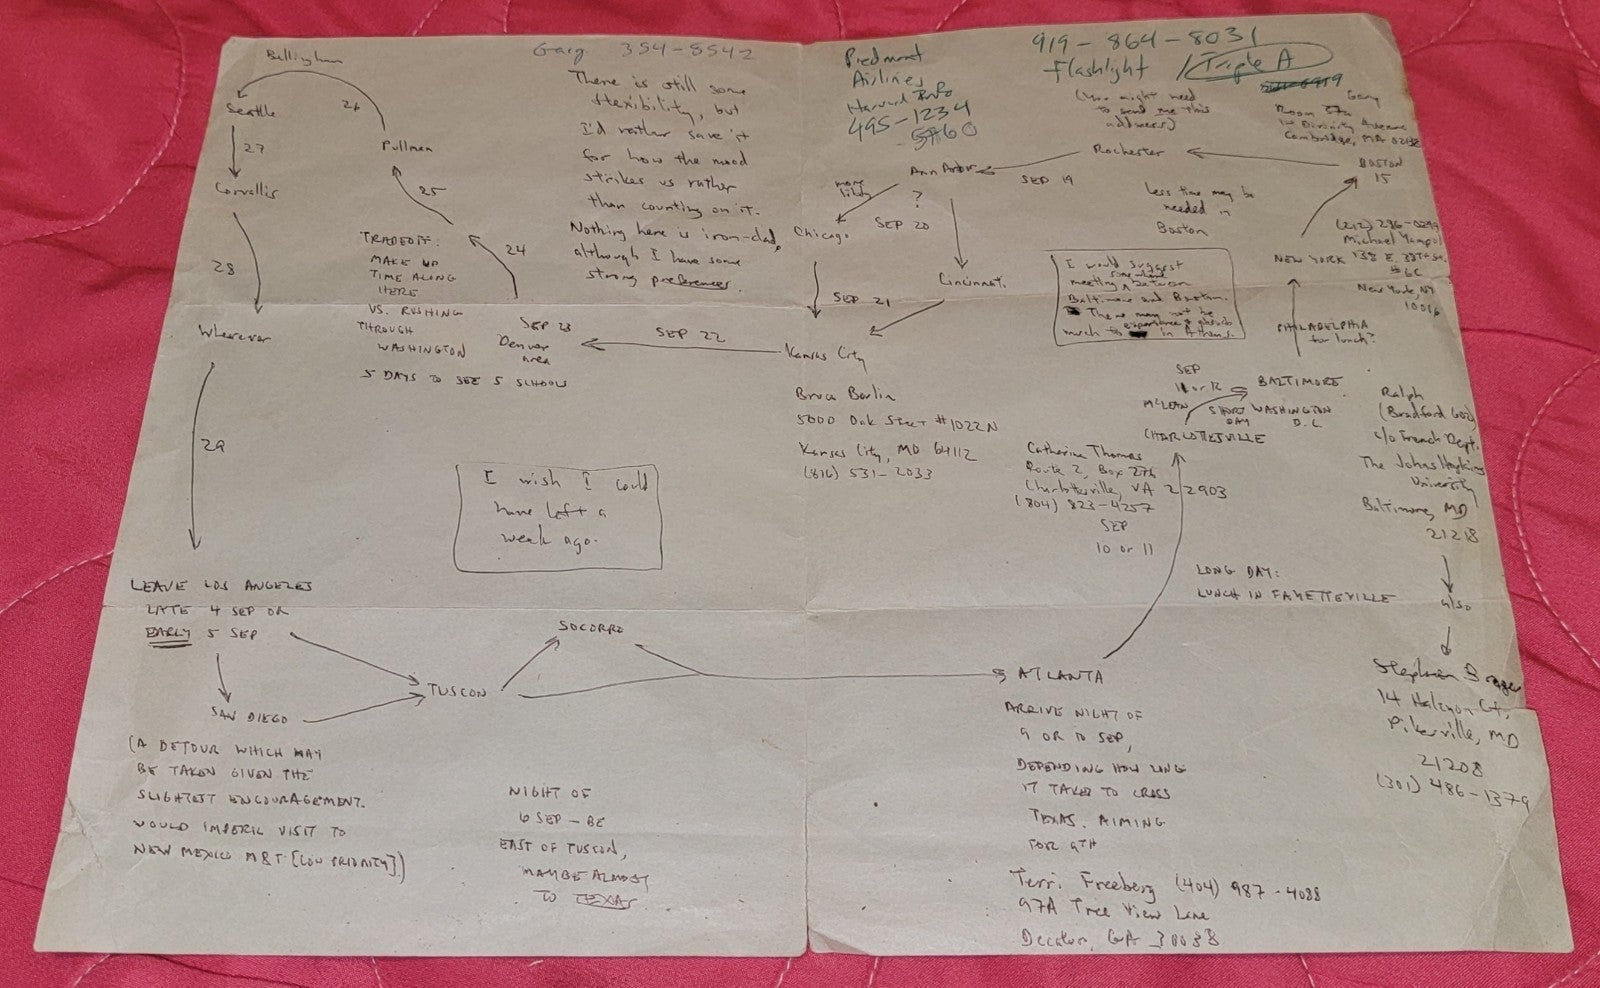 Bellingham
Seattle
26
27
Pullman
Corvallis
25
28
24
Wherever
29
TRADEOFF:
MAKE UP
TIME ALONG
HERE
VS. RUSHING
THROUGH
WASHINGTON
5 DAYS TO SEE 5 SCHOOLS
Gary 354-8542
There is still some
flexibility, but
I'd rather save it
for how the mood
strikes us rather
than counting on it.
Nothing here is iron-clad,
although I have some
strong preferences.
SEP 23
Denver
area
SEP 22
I wish I could
have left a
week ago.
Piedmont
Airlines
Harvard Info
495-1234
919-864-8031
flashlight / Triple A
(You might need
to send me this
address)
Gary
Room
Divinity Avenue
Cambridge, MA
Rochester
BOSTON
15
SEP 19
Ann Arbor
?
more
likely
SEP 20
Chicago
Cincinnati
SEP 21
Kansas City
Less time may be
needed in
Boston
I would suggest
meeting somewhere between
Baltimore and Boston.
There may not be
much to experience & absorb in Athens.
(212) 296-0299
Michael Yampol
NEW YORK 138 E.
6C
New York, NY
10016
PHILADELPHIA
for lunch?
SEP
11 or 12
BALTIMORE
McLEAN
SHORT
DAY
WASHINGTON
D.C.
CHARLOTTESVILLE
Bruce Berlin
5000 Oak Street #1022N
Kansas City, MO 64112
(816) 531-2033
Catherine Thomas
Route 2, Box 276
Charlottesville, VA 22903
(804) 823-4257
SEP
10 or 11
Ralph
(Bradford 602)
c/o French Dept.
The Johns Hopkins
University
Baltimore, MD
21218
also
Stephen
14 Halcyon Ct,
Pikesville, MD
21208
(301) 486-1379
LONG DAY:
LUNCH IN FAYETTEVILLE
LEAVE LOS ANGELES
LATE 4 SEP OR
EARLY 5 SEP
SAN DIEGO
TUSCON
SOCORRO
ATLANTA
(A DETOUR WHICH MAY
BE TAKEN GIVEN THE
SLIGHTEST ENCOURAGEMENT.
WOULD IMPERIL VISIT TO
NEW MEXICO M&T [LOW PRIORITY].)
NIGHT OF
6 SEP - BE
EAST OF TUSCON,
MAYBE ALMOST
TO TEXAS
ARRIVE NIGHT OF
9 OR 10 SEP,
DEPENDING HOW LONG
IT TAKES TO CROSS
TEXAS. AIMING
FOR 9TH
Terri Freeberg (404) 987-4088
97A Tree View Lane
Decatur, GA 30038